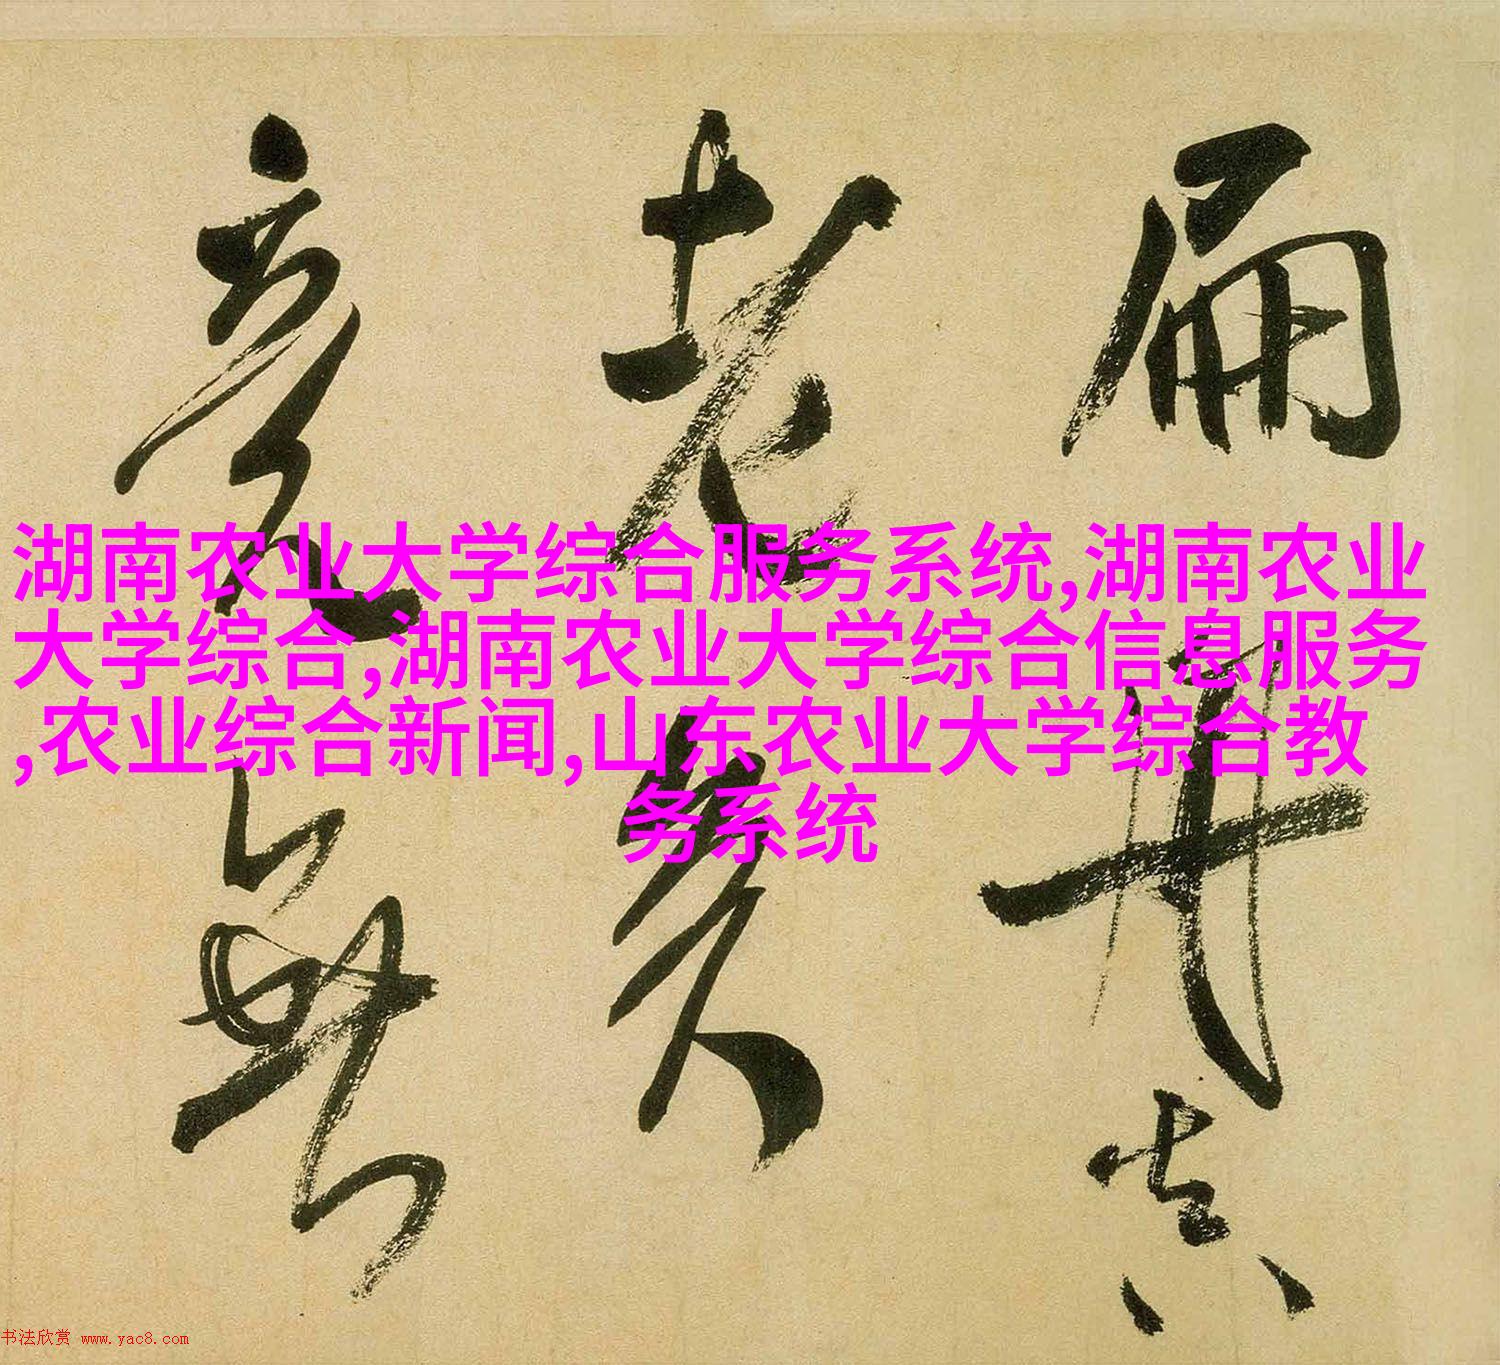 湖南农业大学综合服务系统,湖南农业
大学综合,湖南农业大学综合信息服务
,农业综合新闻,山东农业大学综合教
务系统
扁舟真
老矣
竟無
书法欣赏 www.yac8.com